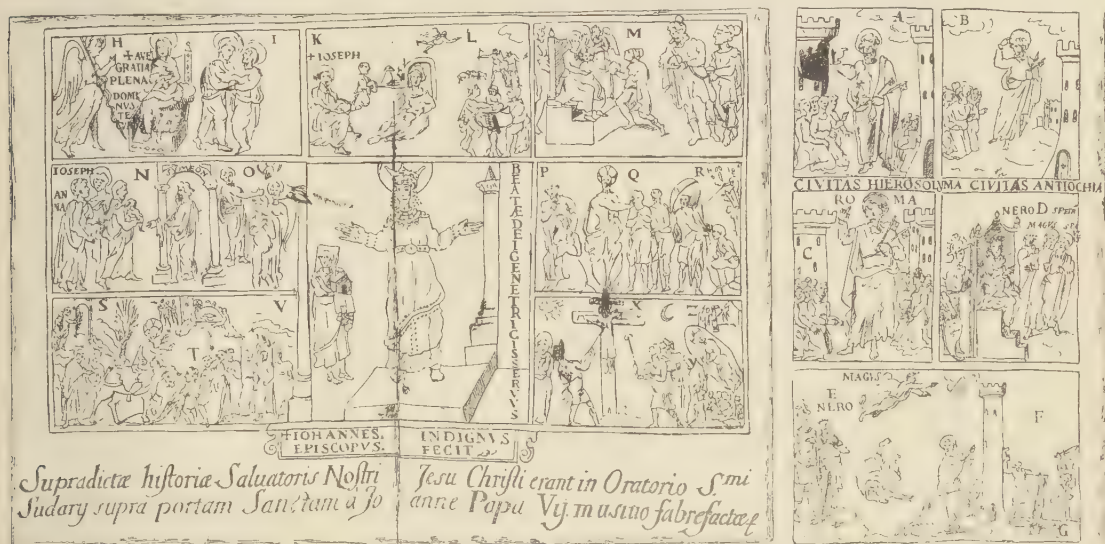 H I K L M
+ AVE
GRATIA
PLENA
DOMI
NVS
TE
+ IOSEPH
IOSEPH
AN
NA
N O
P Q R
BEATÆ DEI GENETRICIS SERVVS
S T V
X
+IOHANNES. INDIGNVS
EPISCOPVS. FECIT
Supradictæ historiæ Saluatoris Nostri Jesu Christi erant in Oratorio S.mi
Sudarij supra portam Sanctam a Jo anne Papa Vij. musiuo fabrefactæ
A B
CIVITAS HIEROSOLVMA CIVITAS ANTIOCHIA
RO MA
C
NERO D
MAGVS
MAGVS
E
NERO
F
G